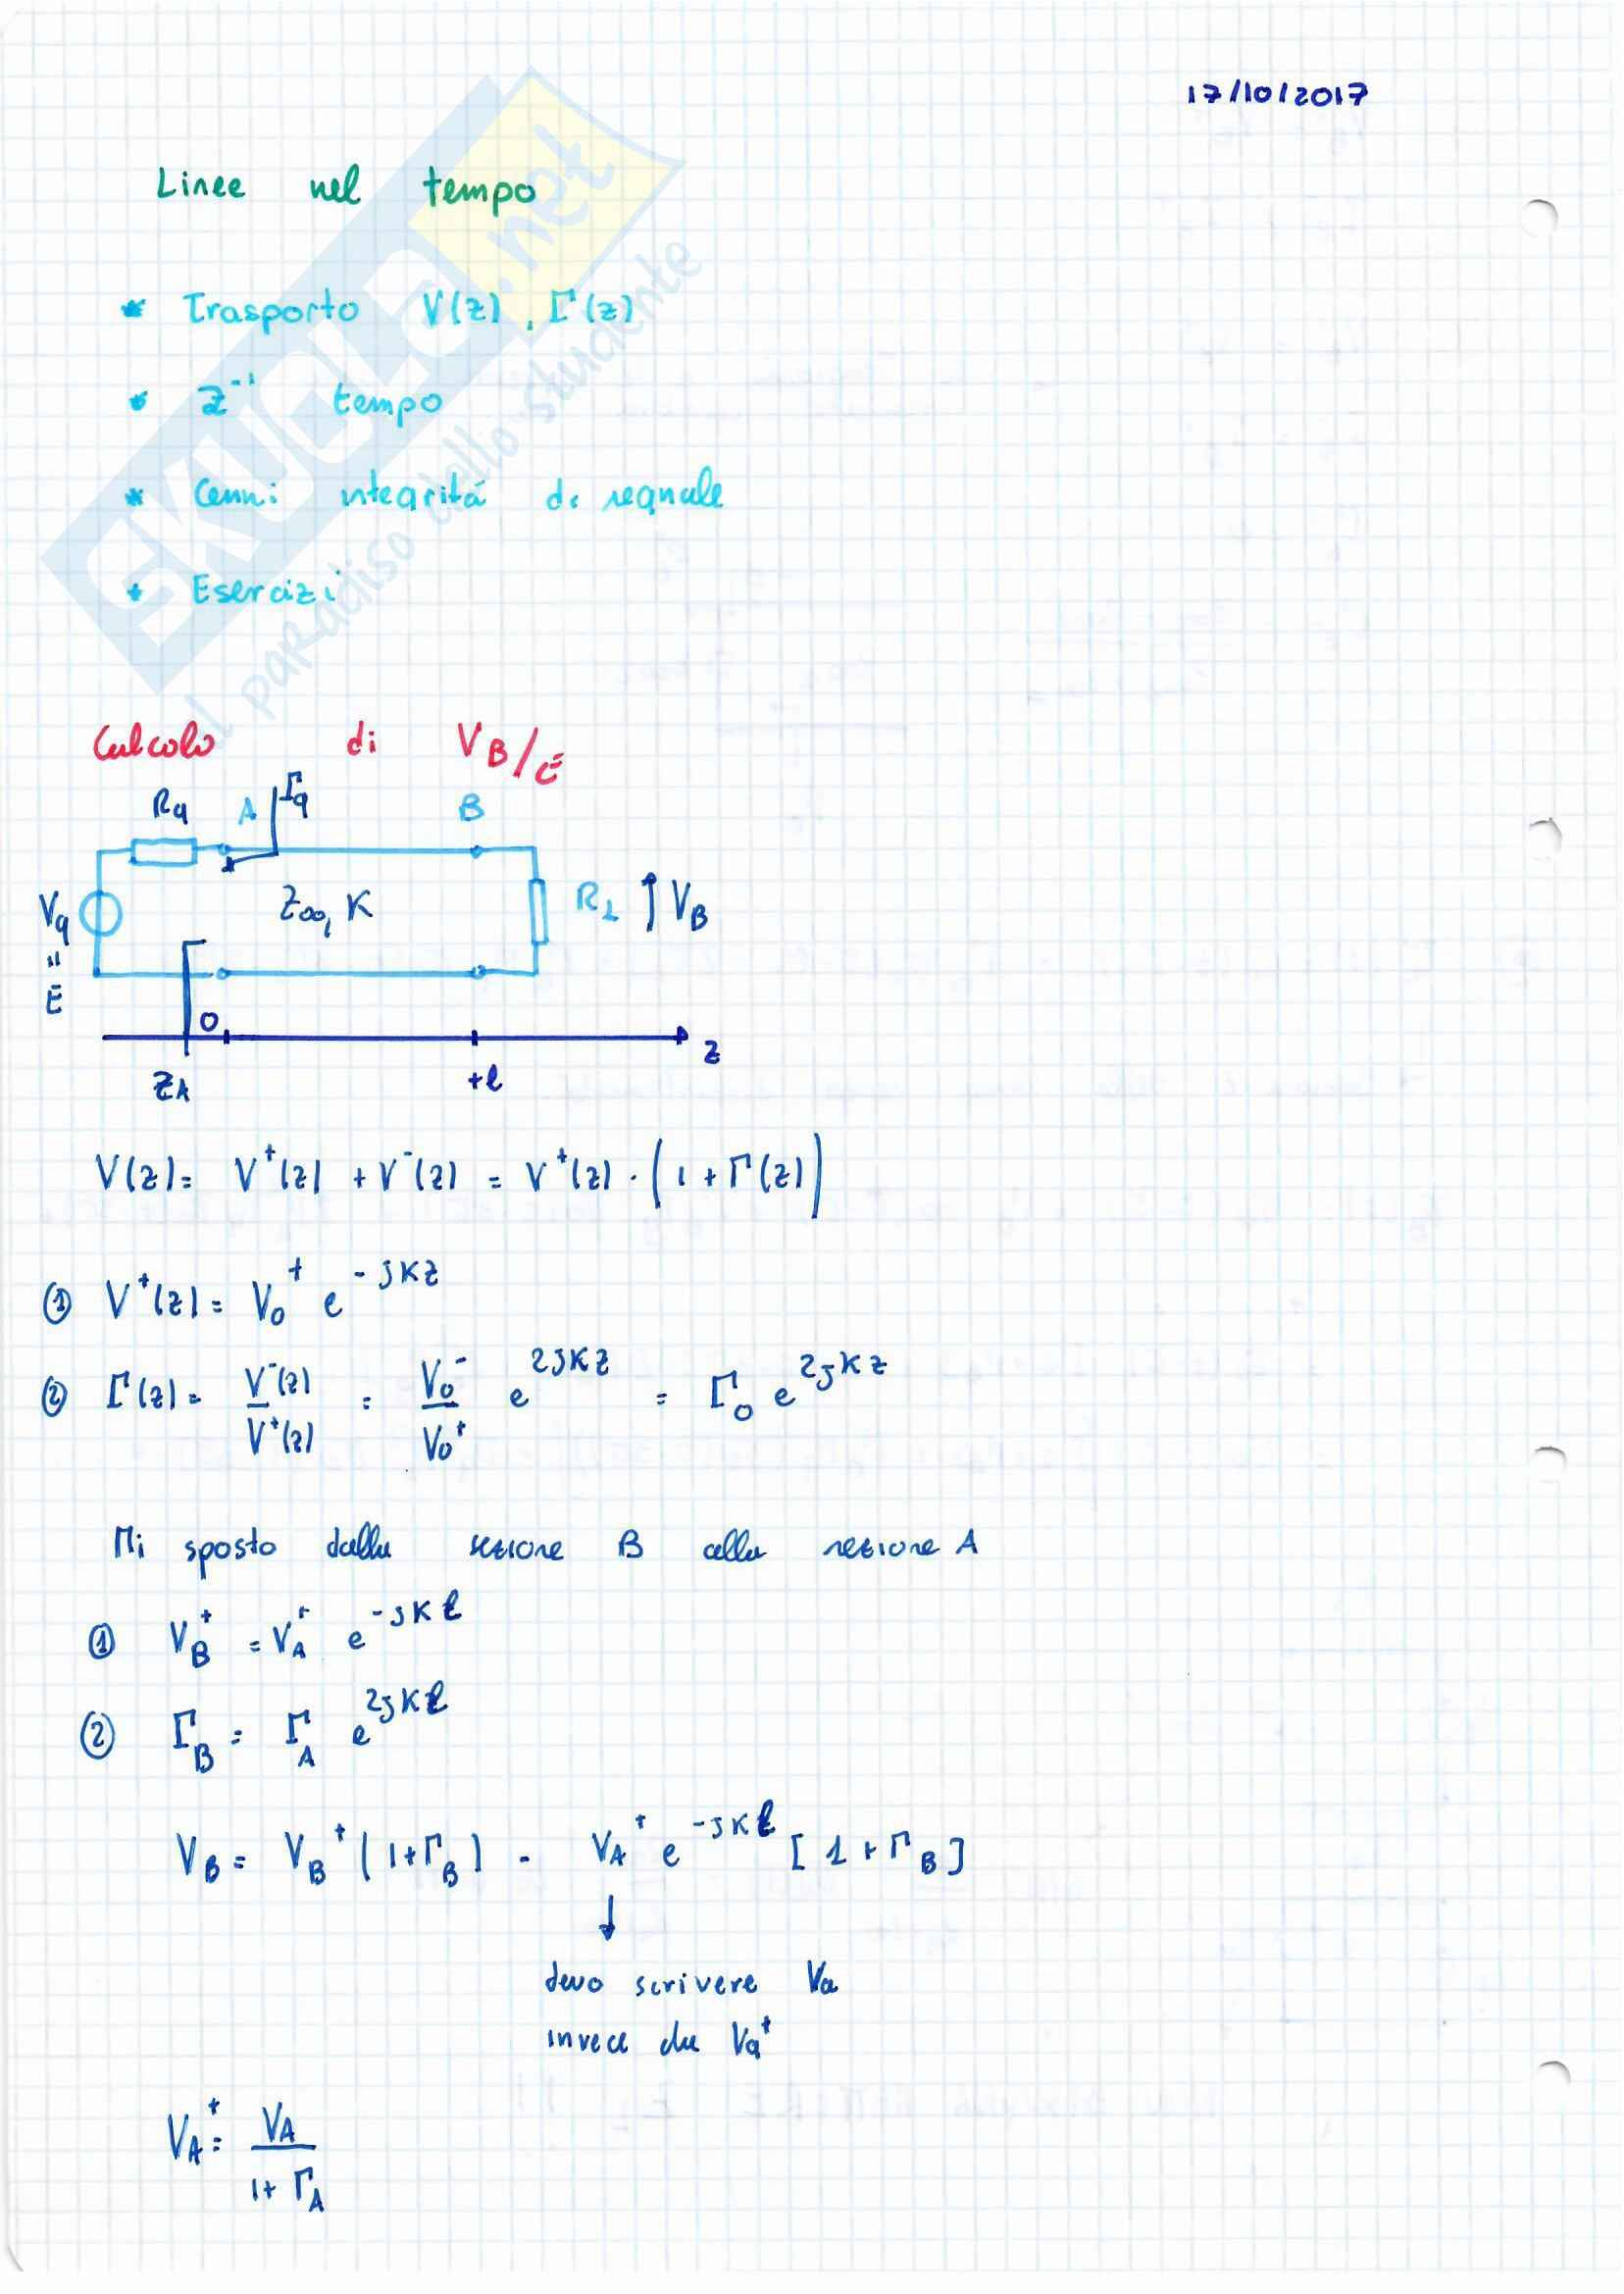 17/10/2017
Linee nel tempo
* Trasporto V(z), Γ(z)
* Z⁻¹ tempo
* Cenni integrità di segnale
* Esercizi
SKUOLA.net
il paradiso dello studente
Calcolo di V_B/E
Rg A Γg B
Vg Z∞, K R_L ↑ V_B
"
E
0
Z_A +ℓ z
V(z) = V⁺(z) + V⁻(z) = V⁺(z) · (1 + Γ(z))
① V⁺(z) = V₀⁺ e^(-jKz)
② Γ(z) = V⁻(z)/V⁺(z) = V₀⁻/V₀⁺ e^(2jKz) = Γ₀ e^(2jKz)
Mi sposto dalla sezione B alla sezione A
① V_B⁺ = V_A⁺ e^(-jKℓ)
② Γ_B = Γ_A e^(2jKℓ)
V_B = V_B⁺ (1+Γ_B) = V_A⁺ e^(-jKℓ) [1 + Γ_B]
↓
devo scrivere Va
invece che Va⁺
V_A⁺ = V_A/(1+Γ_A)